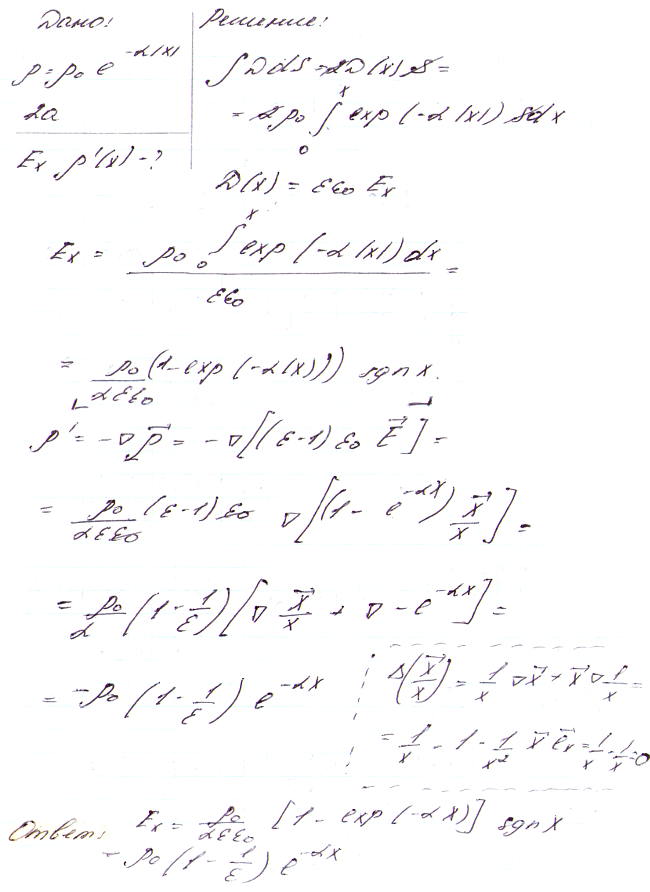 Дано:
ρ=ρ₀ e^{-α|x|}
2a
Eₓ ρ'(x) - ?
Решение:
∫DdS=2D(x)S=
= 2ρ₀ ∫₀ˣ exp(-α|x|) Sdx
D(x) = εε₀ Eₓ
Eₓ = ρ₀ ∫₀ˣ exp(-α|x|)dx / εε₀ =
= ρ₀/αεε₀ (1-exp(-α|x|)) sgn x.
ρ' = -∇P⃗ = -∇[(ε-1)ε₀ E⃗] =
= ρ₀/αεε₀ (ε-1)ε₀ ∇[(1- e^{-αx}) x⃗/x] =
= ρ₀/α (1-1/ε)[∇ x⃗/x + ∇ - e^{-αx}] =
= -ρ₀ (1-1/ε) e^{-αx}
Δ(x⃗/x) = 1/x ∇x⃗ + x⃗ ∇ 1/x =
= 1/x - 1 - 1/x² x⃗ e⃗ₓ = 1/x - 1/x = 0
Ответ: Eₓ = ρ₀/αεε₀ [1 - exp(-αx)] sgn x
- ρ₀ (1-1/ε) e^{-αx}